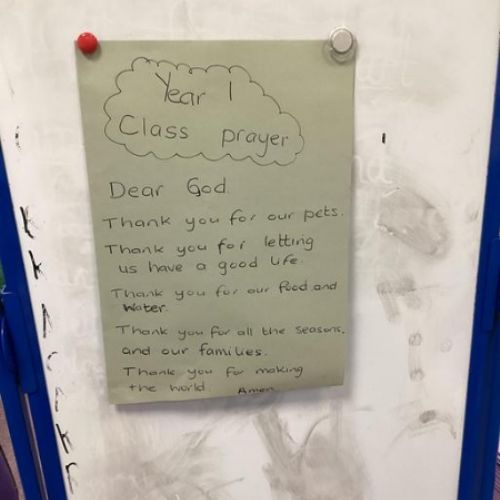 Year 1
Class prayer
Dear God.
Thank you for our pets.
Thank you for letting
us have a good life.
Thank you for our food and
water.
Thank you for all the seasons.
and our families.
Thank you for making
the world. Amen